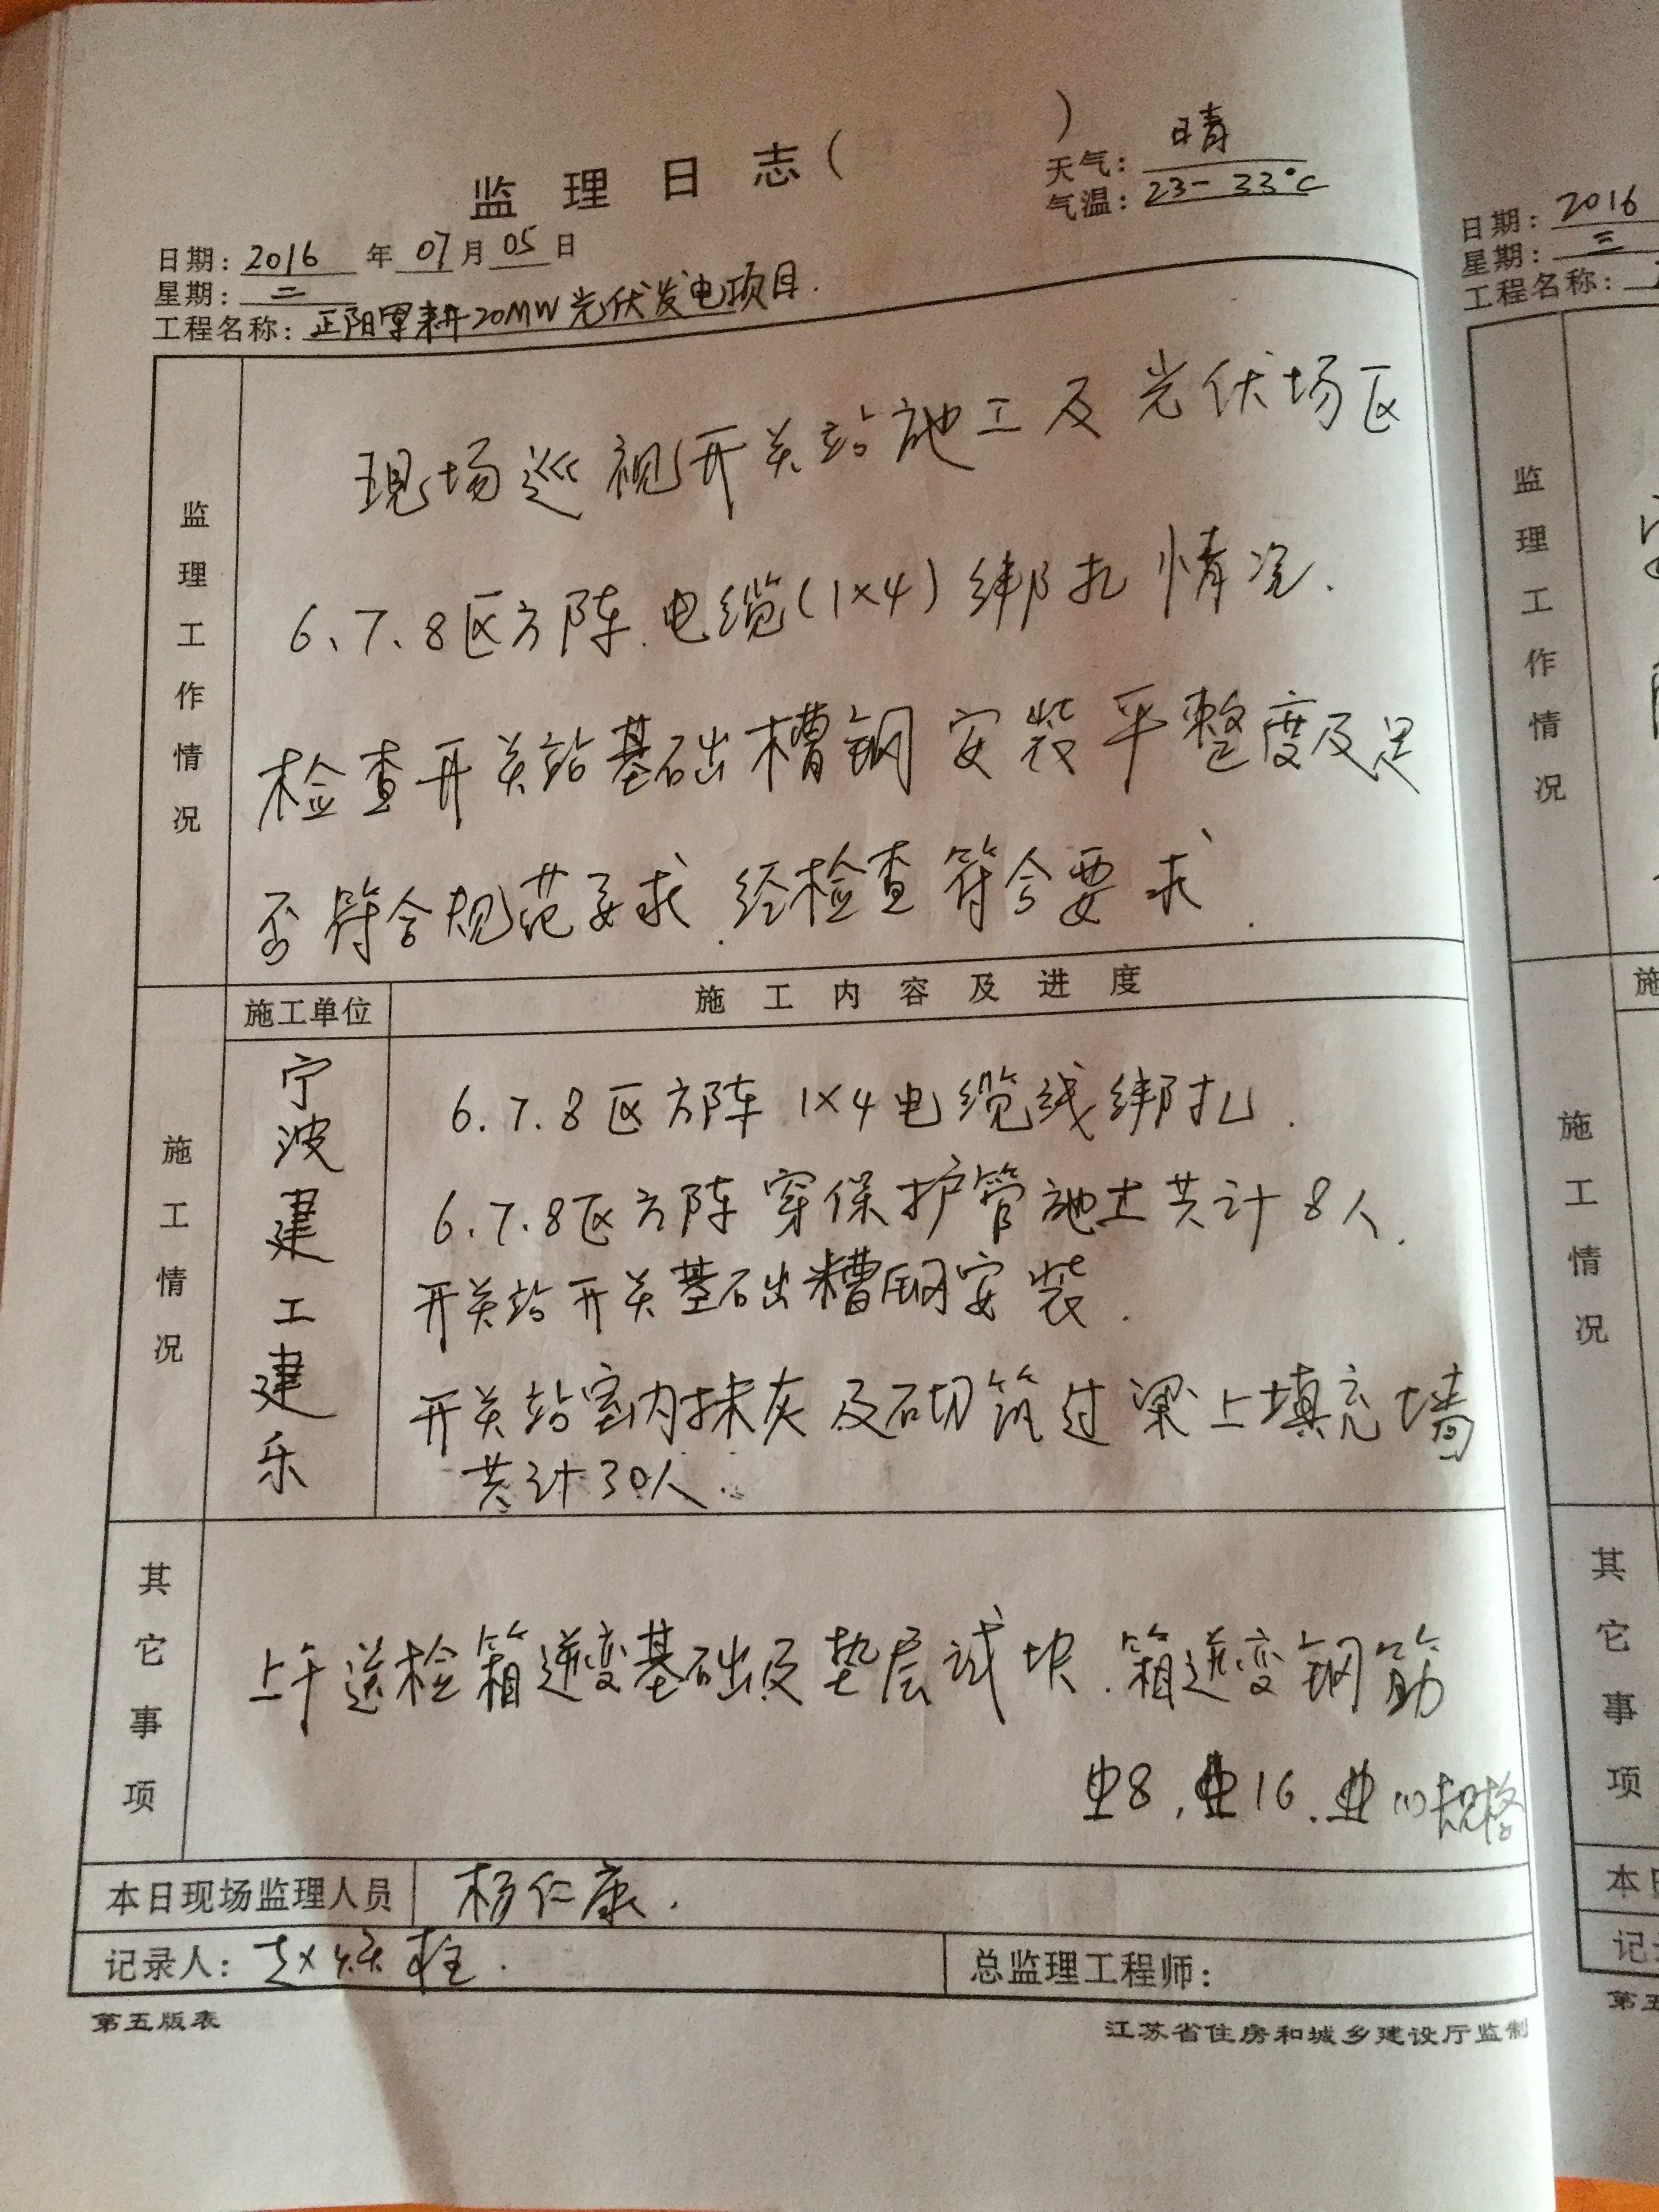 监理日志（ ）
天气：晴
气温：23-33℃
日期：2016年07月05日
星期：二
工程名称：正阳覃耕20MW光伏发电项目.
监理工作情况
现场巡视开关站施工及光伏场区
6、7、8区方阵.电缆(1×4)绑扎情况.
检查开关站基础槽钢安装平整度及是
否符合规范要求.经检查符合要求.
施工情况
施工单位
施工内容及进度
宁波建工建乐
6.7.8区方阵1×4电缆线绑扎.
6.7.8区方阵穿保护管施工共计8人.
开关站开关基础槽钢安装.
开关站室内抹灰及砌筑过梁上填充墙
共计30人.
其它事项
上午送检箱逆变基础及垫层试块.箱逆变钢筋
8. 16. 规格
本日现场监理人员 杨仁康.
记录人：赵
总监理工程师：
第五版表
江苏省住房和城乡建设厅监制
日期：2016
星期：三
工程名称：
监理工作情况
施
施工情况
其它事项
本日
记
第五